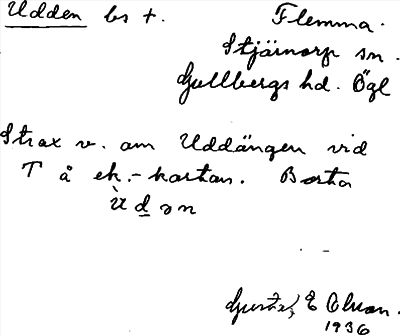 Udden bs +. Flemma.
Stjärnorp sn.
Gullbergs hd. Ögl
Strax v. om Uddängen vid
T å ek.-kartan. Borta
Ùdən
Gustaf E Olson.
1936